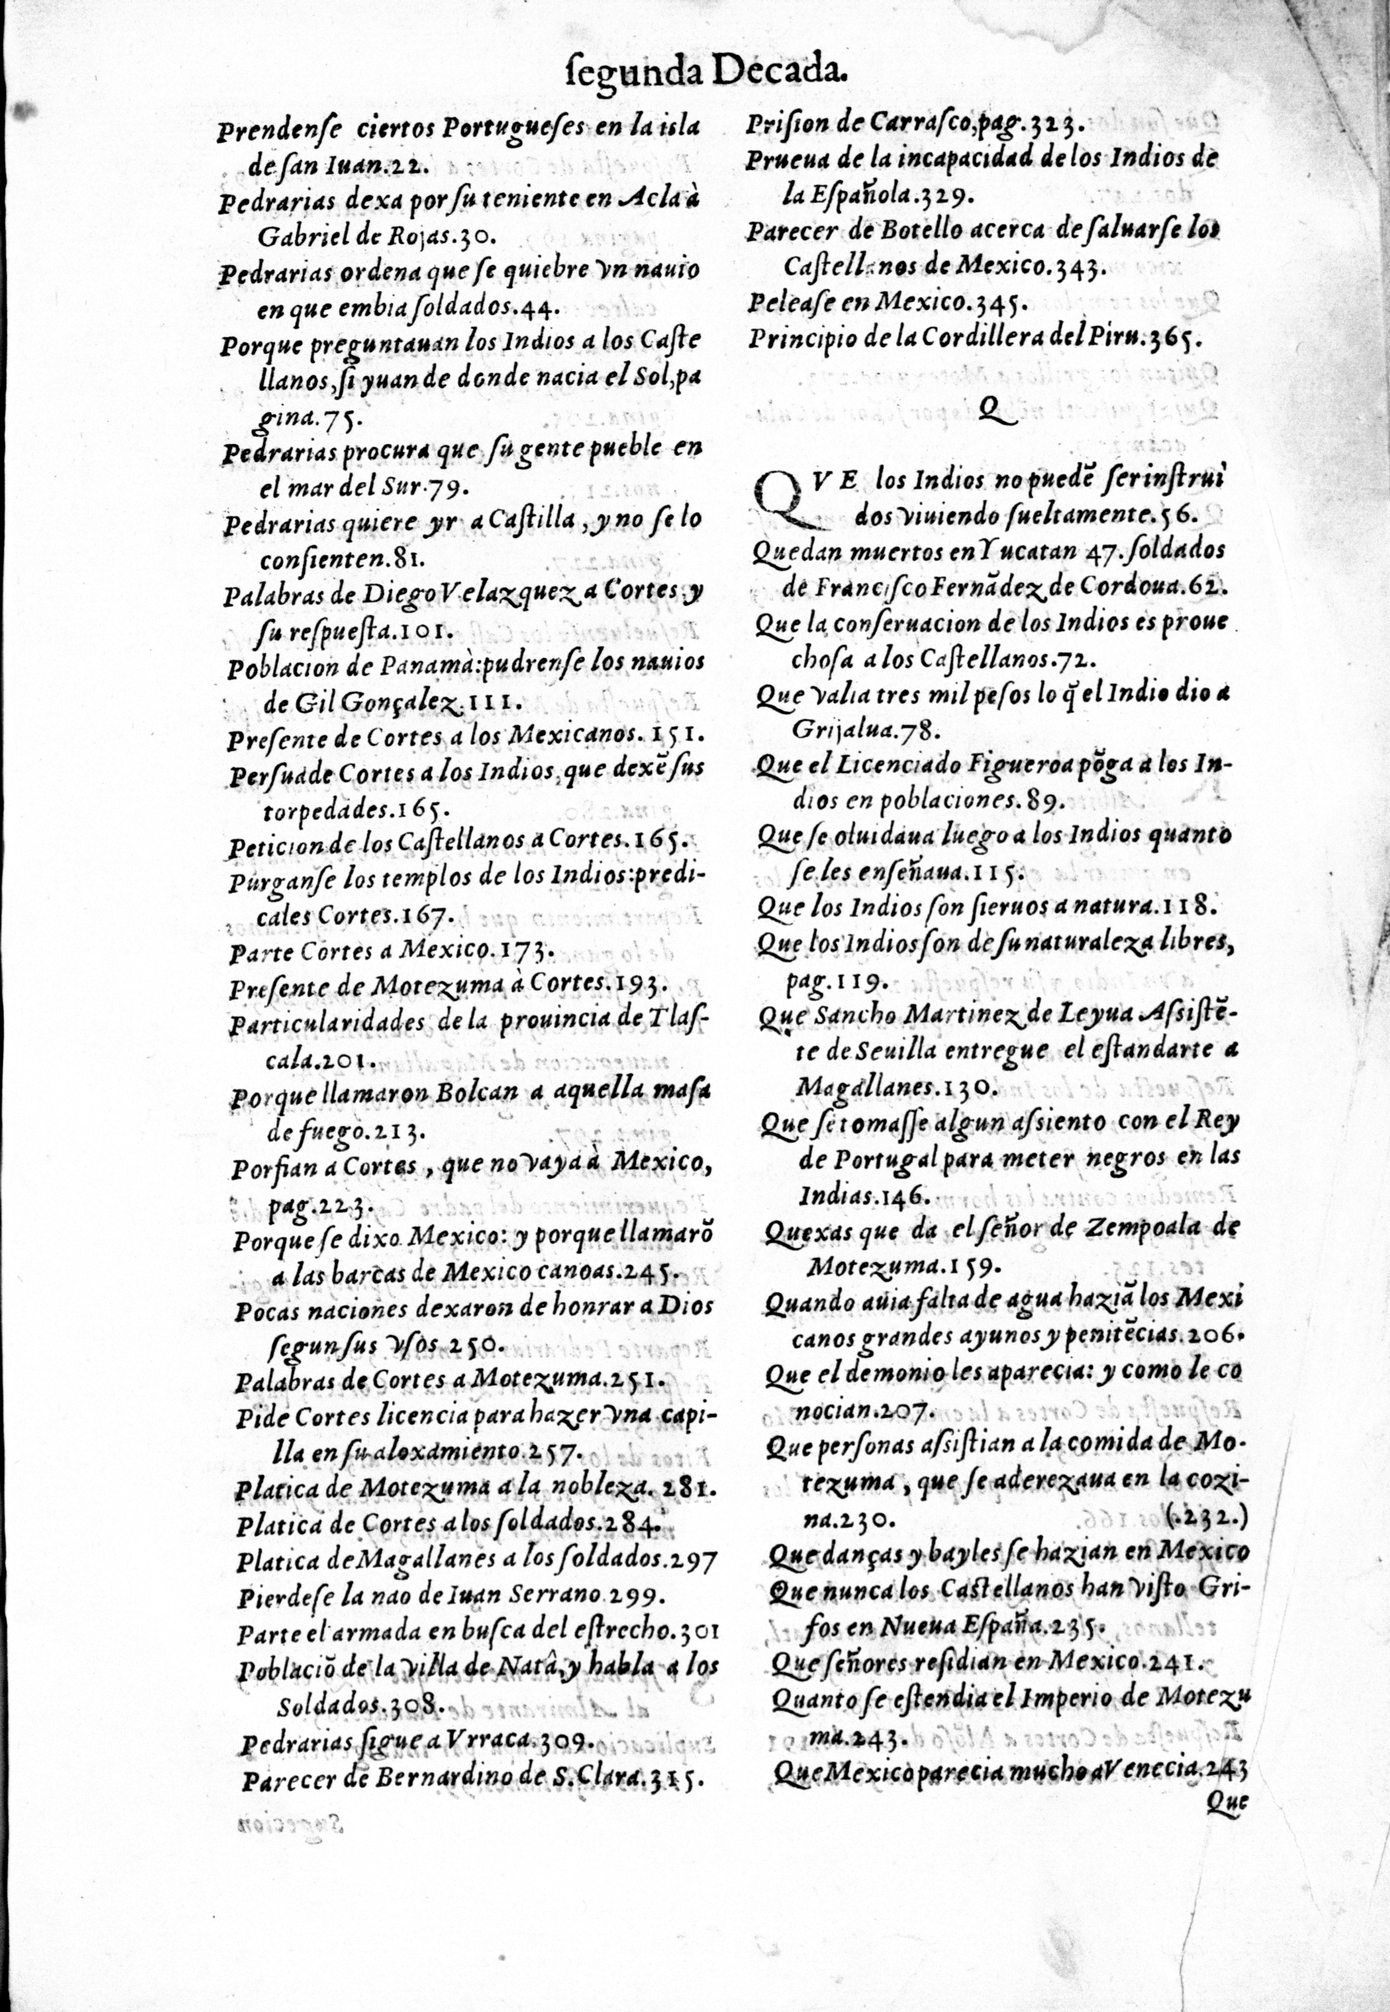 segunda Decada.
Prendense ciertos Portugueses en la isla
de san Iuan.22.
Pedrarias dexa por su teniente en Acla à
Gabriel de Rojas.30.
Pedrarias ordena que se quiebre vn nauio
en que embia soldados.44.
Porque preguntauan los Indios a los Caste
llanos, si yuan de donde nacia el Sol, pa
gina.75.
Pedrarias procura que su gente pueble en
el mar del Sur.79.
Pedrarias quiere yr a Castilla, y no se lo
consienten.81.
Palabras de Diego Velazquez a Cortes y
su respuesta.101.
Poblacion de Panamà: pudrense los nauios
de Gil Gonçalez.111.
Presente de Cortes a los Mexicanos.151.
Persuade Cortes a los Indios, que dexẽ sus
torpedades.165.
Peticion de los Castellanos a Cortes.165.
Purganse los templos de los Indios: predi-
cales Cortes.167.
Parte Cortes a Mexico.173.
Presente de Motezuma à Cortes.193.
Particularidades de la prouincia de Tlas-
cala.201.
Porque llamaron Bolcan a aquella masa
de fuego.213.
Porfian a Cortes, que no vaya à Mexico,
pag.223.
Porque se dixo Mexico: y porque llamarõ
a las barcas de Mexico canoas.245.
Pocas naciones dexaron de honrar a Dios
segun sus vsos.250.
Palabras de Cortes a Motezuma.251.
Pide Cortes licencia para hazer vna capi-
lla en su aloxamiento.257.
Platica de Motezuma a la nobleza.281.
Platica de Cortes a los soldados.284.
Platica de Magallanes a los soldados.297
Pierdese la nao de Iuan Serrano.299.
Parte el armada en busca del estrecho.301
Poblaciõ de la villa de Natâ, y habla a los
Soldados.308.
Pedrarias sigue a Vrraca.309.
Parecer de Bernardino de S.Clara.315.
Prision de Carrasco, pag.323.
Prueua de la incapacidad de los Indios de
la Española.329.
Parecer de Botello acerca de saluarse los
Castellanos de Mexico.343.
Pelease en Mexico.345.
Principio de la Cordillera del Piru.365.
Q
QVE los Indios no puedẽ ser instrui
dos viuiendo sueltamente.56.
Quedan muertos en Yucatan 47. soldados
de Francisco Fernãdez de Cordoua.62.
Que la conseruacion de los Indios es proue
chosa a los Castellanos.72.
Que valia tres mil pesos lo q̃ el Indio dio a
Grijalua.78.
Que el Licenciado Figueroa põga a los In-
dios en poblaciones.89.
Que se oluidaua luego a los Indios quanto
se les enseñaua.115.
Que los Indios son sieruos a natura.118.
Que los Indios son de su naturaleza libres,
pag.119.
Que Sancho Martinez de Leyua Assistẽ-
te de Seuilla entregue el estandarte a
Magallanes.130.
Que se tomasse algun assiento con el Rey
de Portugal para meter negros en las
Indias.146.
Quexas que da el señor de Zempoala de
Motezuma.159.
Quando auia falta de agua haziã los Mexi
canos grandes ayunos y penitẽcias.206.
Que el demonio les aparecia: y como le co
nocian.207.
Que personas assistian a la comida de Mo-
tezuma, que se aderezaua en la cozi-
na.230. (.232.)
Que danças y bayles se hazian en Mexico
Que nunca los Castellanos han visto Gri-
fos en Nueua España.235.
Que señores residian en Mexico.241.
Quanto se estendia el Imperio de Motezu
ma.243.
Que Mexico parecia mucho a Venecia.243
Que